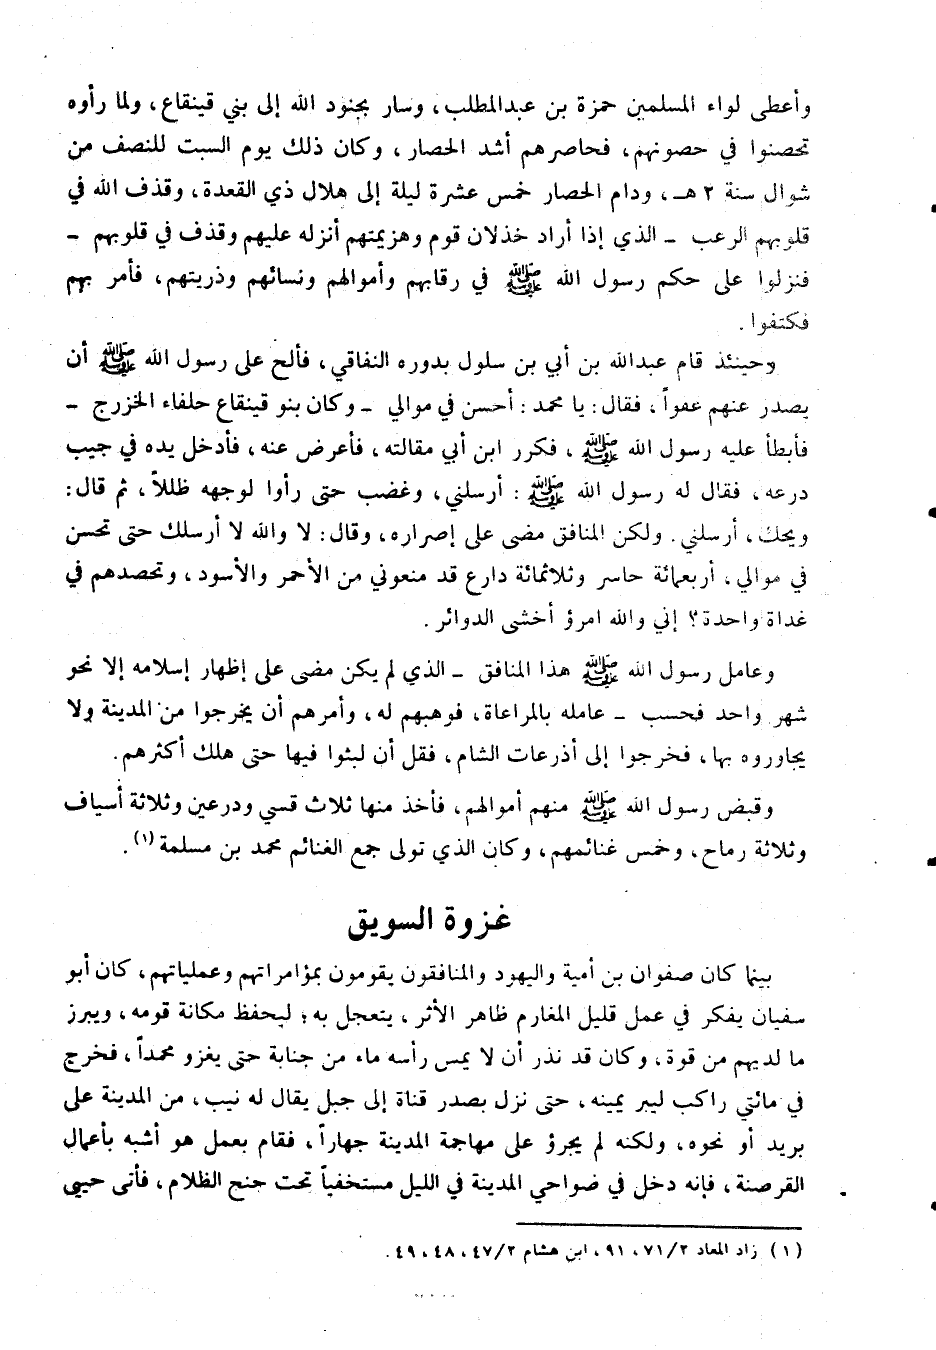 وأعطى لواء المسلمين حمزة بن عبدالمطلب، وسار بجنود الله إلى بني قينقاع، ولما رأوه
تحصنوا في حصونهم، فحاصرهم أشد الحصار، وكان ذلك يوم السبت للنصف من
شوال سنة ٢ هـ، ودام الحصار خمس عشرة ليلة إلى هلال ذي القعدة، وقذف الله في
قلوبهم الرعب ـ الذي إذا أراد خذلان قوم وهزيمتهم أنزله عليهم وقذف في قلوبهم ـ
فنزلوا على حكم رسول الله ﷺ في رقابهم وأموالهم ونسائهم وذريتهم، فأمر بهم
فكتفوا.
وحينئذ قام عبدالله بن أبي بن سلول بدوره النفاقي، فألح على رسول الله ﷺ أن
يصدر عنهم عفواً، فقال: يا محمد: أحسن في موالي ـ وكان بنو قينقاع حلفاء الخزرج ـ
فأبطأ عليه رسول الله ﷺ، فكرر ابن أبي مقالته، فأعرض عنه، فأدخل يده في جيب
درعه، فقال له رسول الله ﷺ: أرسلني، وغضب حتى رأوا لوجهه ظللاً، ثم قال:
ويحك، أرسلني. ولكن المنافق مضى على إصراره، وقال: لا والله لا أرسلك حتى تحسن
في موالي، أربعمائة حاسر وثلاثمائة دارع قد منعوني من الأحمر والأسود، وتحصدهم في
غداة واحدة؟ إني والله امرؤ أخشى الدوائر.
وعامل رسول الله ﷺ هذا المنافق ـ الذي لم يكن مضى على إظهار إسلامه إلا نحو
شهر واحد فحسب ـ عامله بالمراعاة، فوهبهم له، وأمرهم أن يخرجوا من المدينة ولا
يجاوروه بها، فخرجوا إلى أذرعات الشام، فقل أن لبثوا فيها حتى هلك أكثرهم.
وقبض رسول الله ﷺ منهم أموالهم، فأخذ منها ثلاث قسي ودرعين وثلاثة أسياف
وثلاثة رماح، وخمس غنائمهم، وكان الذي تولى جمع الغنائم محمد بن مسلمة (١).
غزوة السويق
بينما كان صفوان بن أمية واليهود والمنافقون يقومون بمؤامراتهم وعملياتهم، كان أبو
سفيان يفكر في عمل قليل المغارم ظاهر الأثر، يتعجل به؛ ليحفظ مكانة قومه، ويبرز
ما لديهم من قوة، وكان قد نذر أن لا يمس رأسه ماء من جنابة حتى يغزو محمداً، فخرج
في مائتي راكب ليبر يمينه، حتى نزل بصدر قناة إلى جبل يقال له نيب، من المدينة على
بريد أو نحوه، ولكنه لم يجرؤ على مهاجمة المدينة جهاراً، فقام بعمل هو أشبه بأعمال
القرصنة، فإنه دخل في ضواحي المدينة في الليل مستخفياً تحت جنح الظلام، فأتى حيي
(١) زاد المعاد ٧١/٢، ٩١، ابن هشام ٤٧/٢، ٤٨، ٤٩.